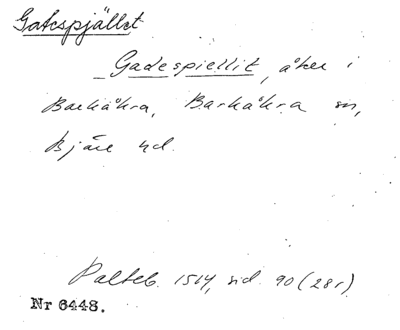 Gatespjället
Gadespiellit, åker i
Barkåkra, Barkåkra sn,
Bjäre hd.
Palteb. 1514, sid. 90 (28r)
Nr 6448.